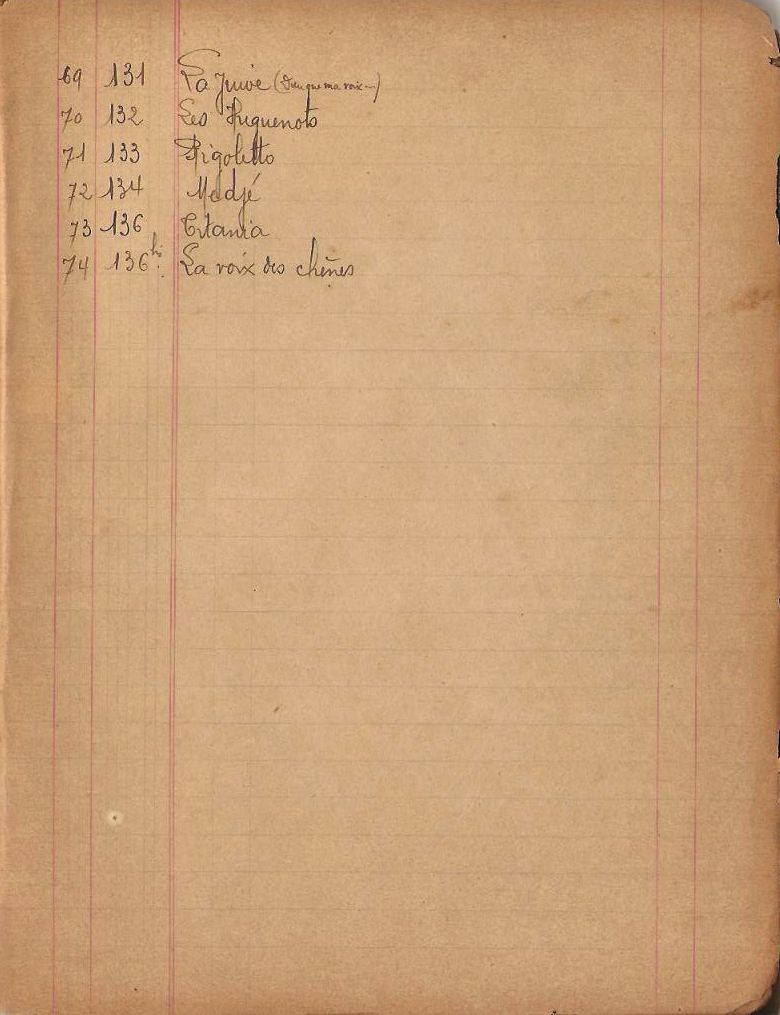 69 131 La Juive (Dieu que ma voix ...)
70 132 Les Huguenots
71 133 Rigoletto
72 134 Medjé
73 136 Titania
74 136 bis. La voix des chênes